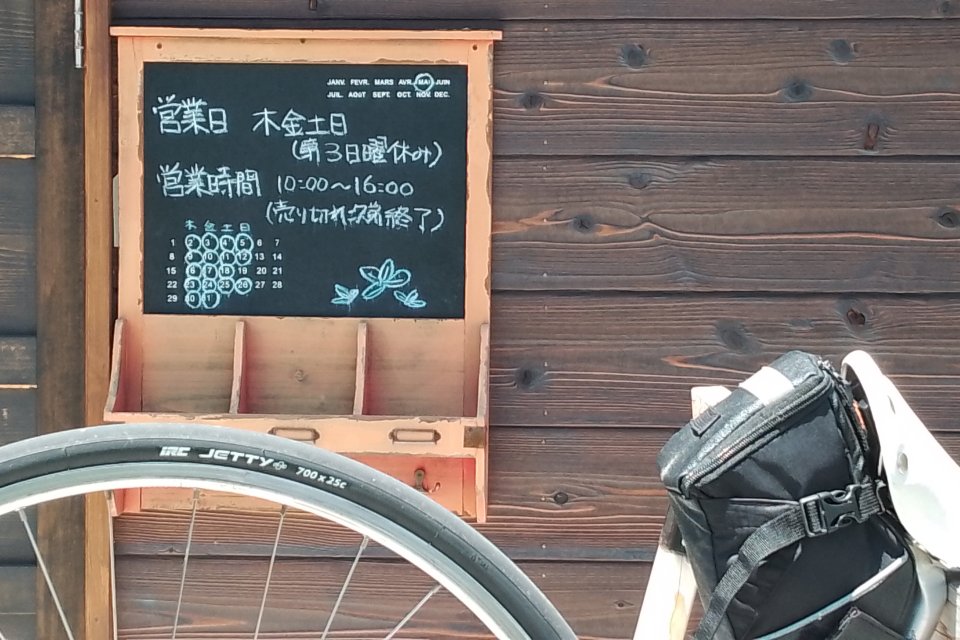 JANV. FEVR. MARS AVR. MAI JUIN
JUIL. AOÛT SEPT. OCT. NOV. DEC.
営業日 木金土日
(第3日曜休み)
営業時間 10:00~16:00
(売り切れ次第終了)
木 金 土 日
1 2 3 4 5 6 7
8 9 10 11 12 13 14
15 16 17 18 19 20 21
22 23 24 25 26 27 28
29 30 31
IRC JETTY plus 700x25c